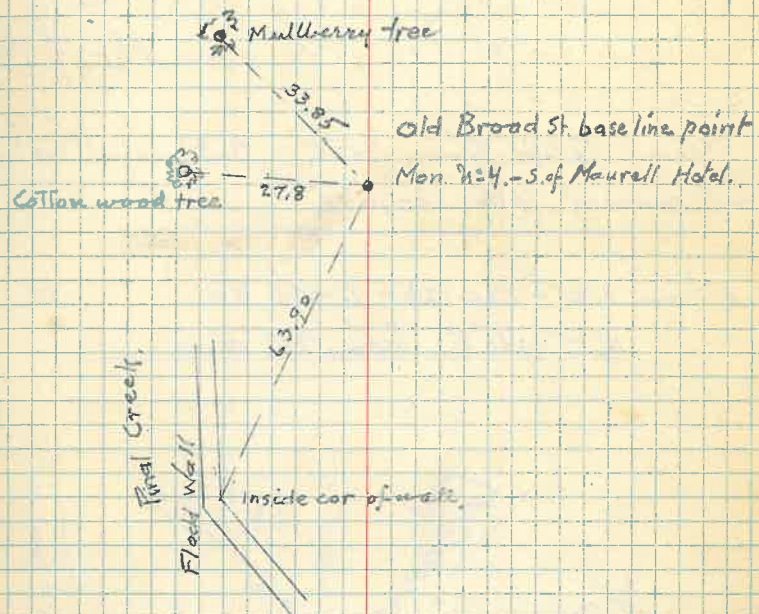 Mullberry tree
33.85
Old Broad St. base line point
Mon. No 4. - S. of Maurell Hotel.
27.8
Cotton wood tree
63.90
Pinal Creek.
Flood Wall
Inside cor of wall.